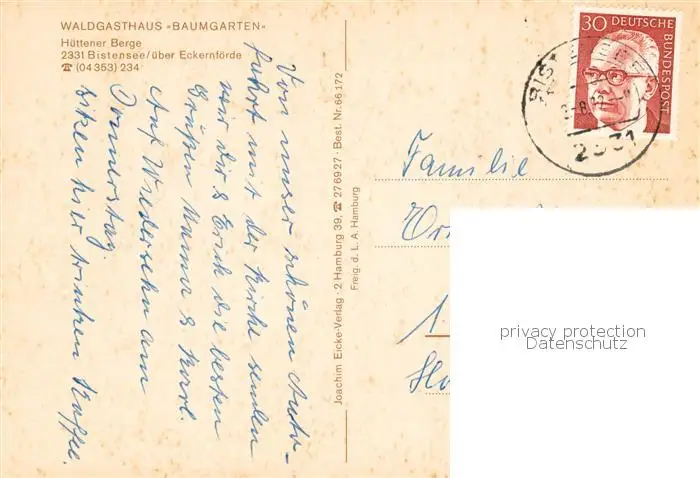 WALDGASTHAUS »BAUMGARTEN«
Hüttener Berge
2331 Bistensee/über Eckernförde
☎ (04 353) 234
Von unser schönen Auto-
fahrt mit der Kirche senden
wir Dir & Erich die besten
Grüßen Mama & Karl.
Auf Wiedersehn am
Donnerstag.
sitzen hier trinken Kaffee.
Joachim Eicke-Verlag · 2 Hamburg 39, ☎ 27 69 27 · Best. Nr. 66 172
Freig. d. L. A. Hamburg
30 DEUTSCHE BUNDESPOST
2331
Familie
1.
privacy protection
Datenschutz